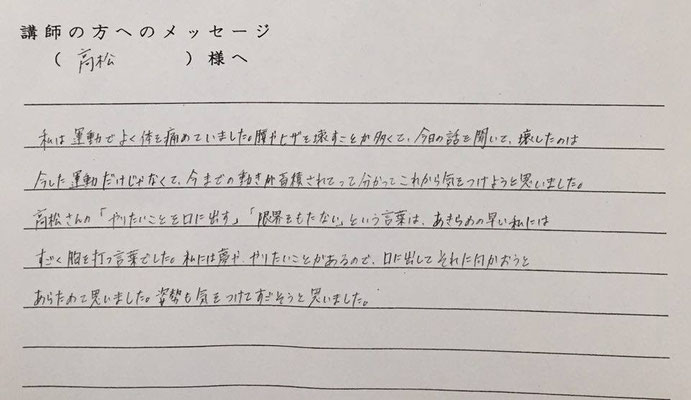 講師の方へのメッセージ
(高松)様へ
私は運動でよく体を痛めていました。腰やヒザを壊すことが多くて、今日の話を聞いて、壊したのは
今した運動だけじゃなくて、今までの動きが蓄積されてって分かってこれから気をつけようと思いました。
高松さんの「やりたいことを口に出す」「限界をもたない」という言葉は、あきらめの早い私には
すごく胸を打つ言葉でした。私には夢や、やりたいことがあるので、口に出してそれに向かおうと
あらためて思いました。姿勢も気をつけてすごそうと思いました。